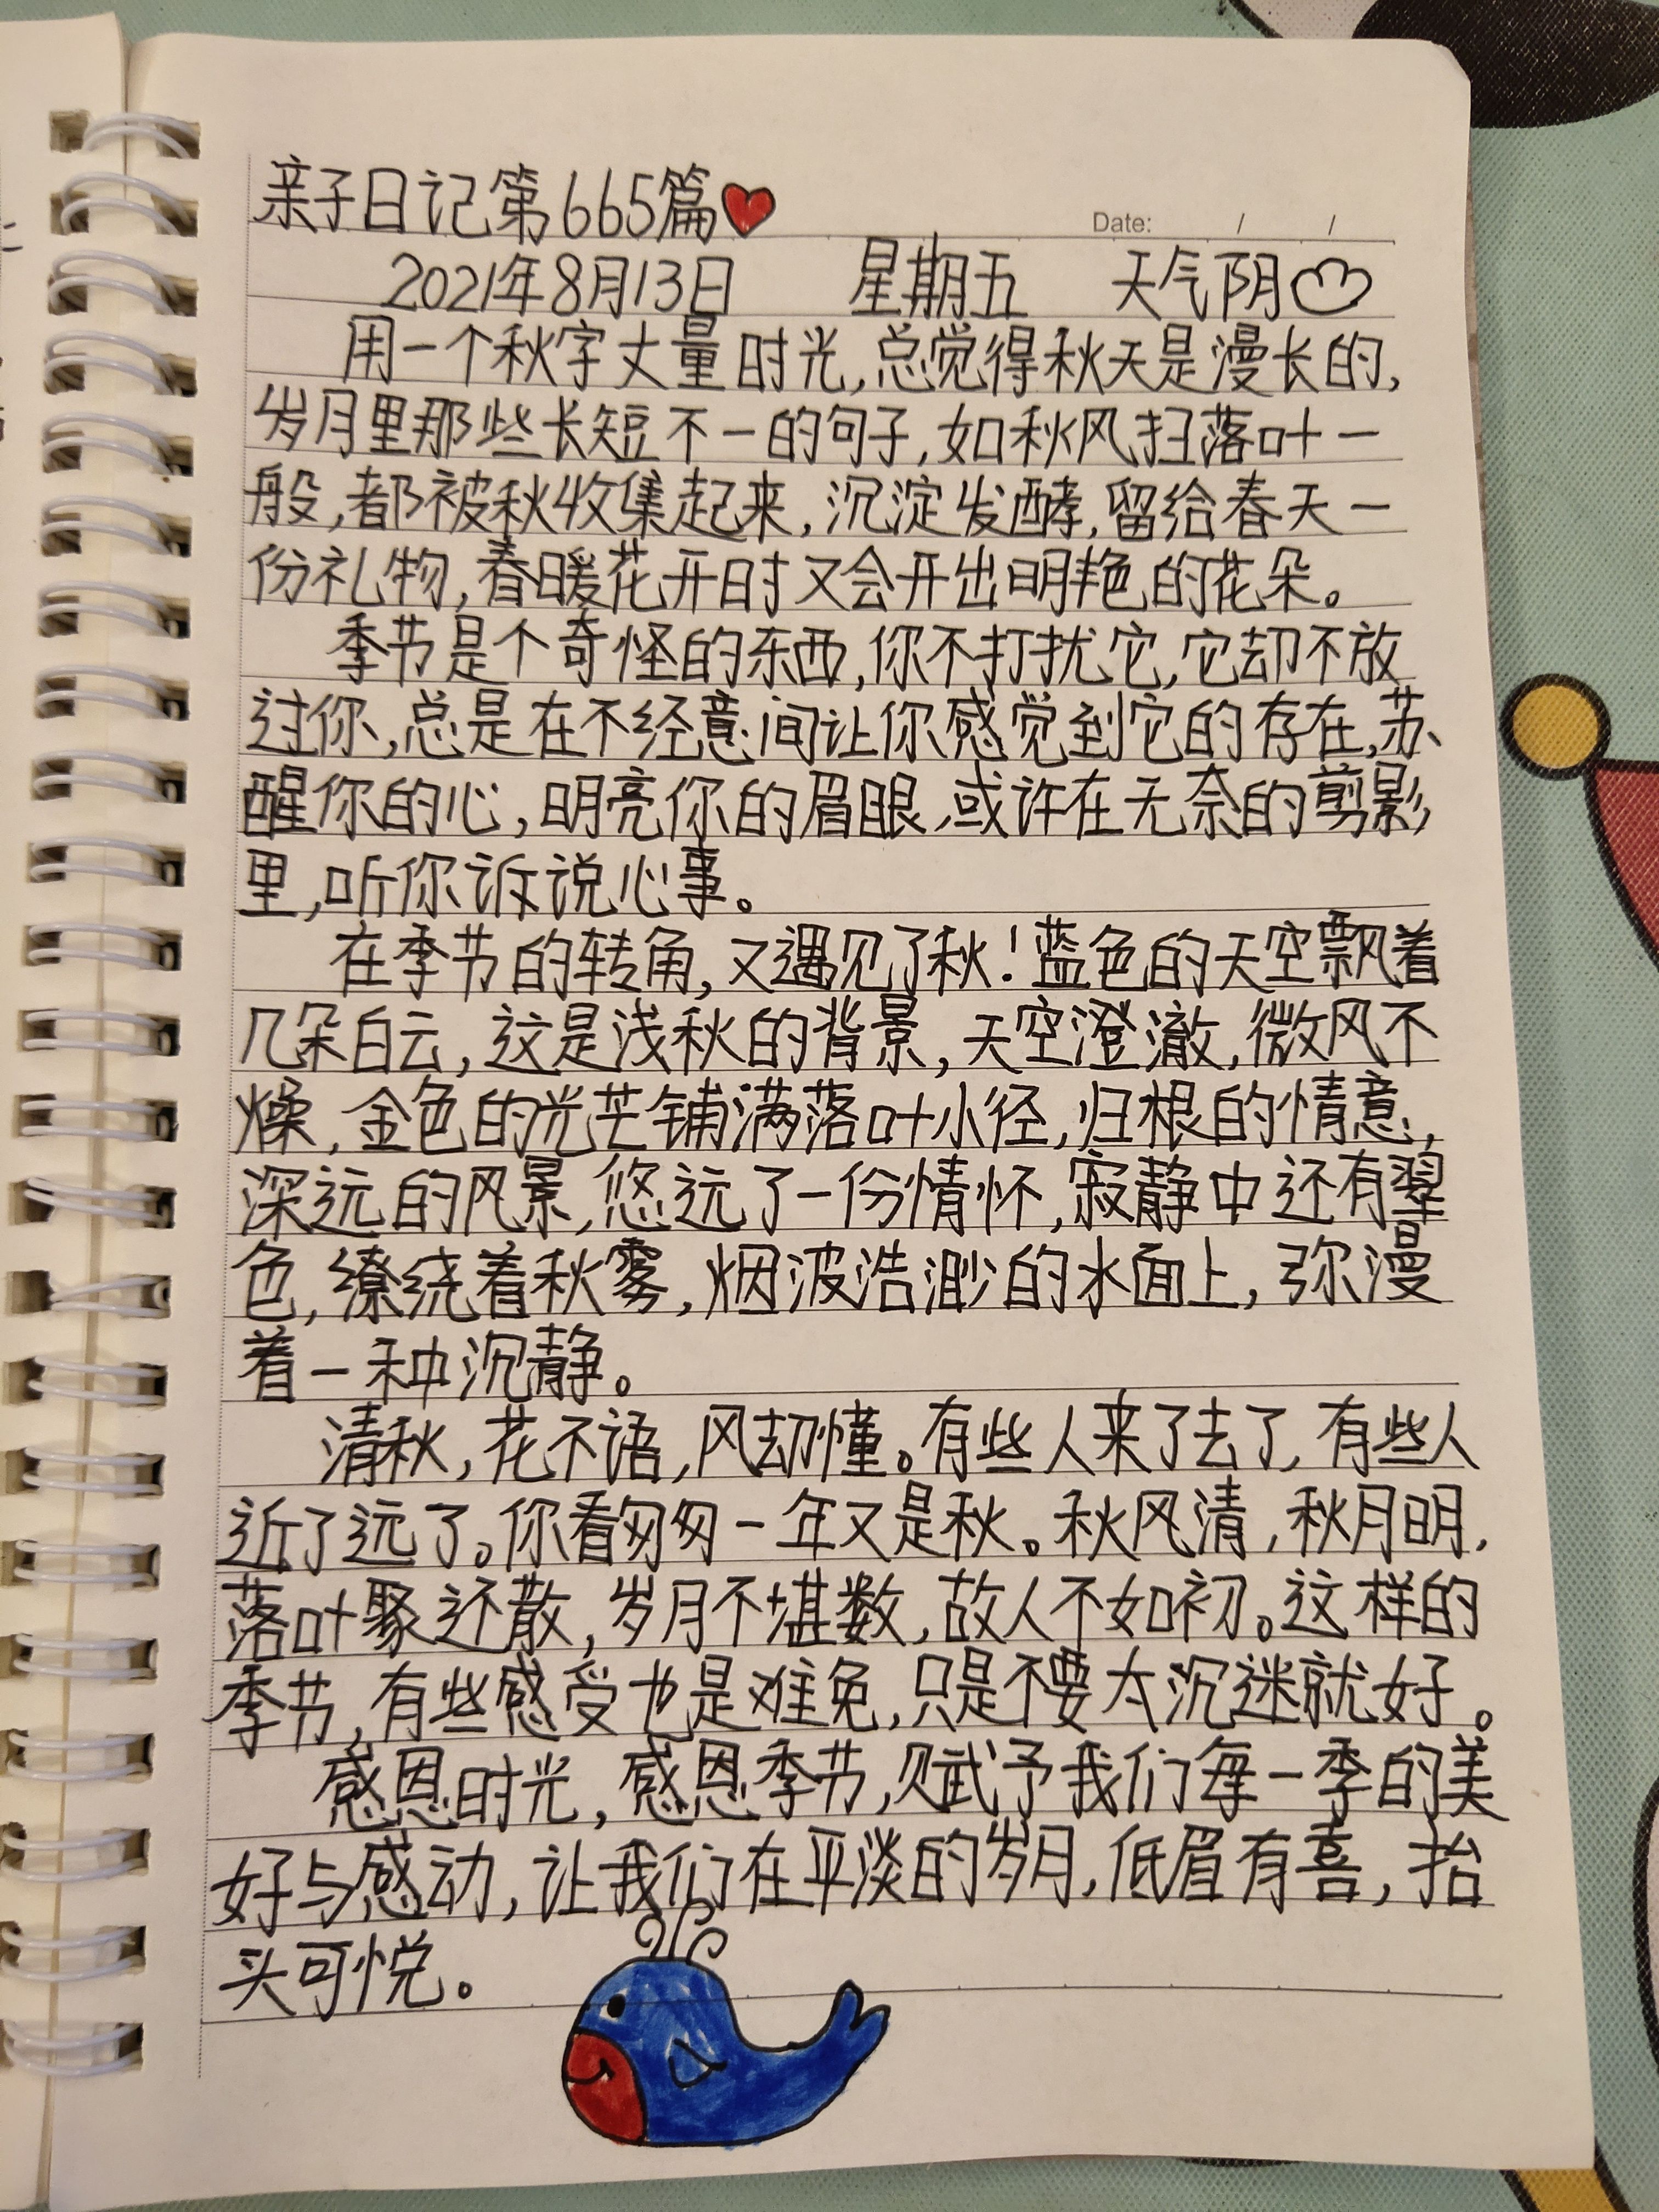 亲子日记第665篇
Date: / /
2021年8月13日 星期五 天气阴
用一个秋字丈量时光,总觉得秋天是漫长的,
岁月里那些长短不一的句子,如秋风扫落叶一
般,都被秋收集起来,沉淀发酵,留给春天一
份礼物,春暖花开时又会开出明艳的花朵。
季节是个奇怪的东西,你不打扰它,它却不放
过你,总是在不经意间让你感觉到它的存在,苏
醒你的心,明亮你的眉眼,或许在无奈的剪影
里,听你诉说心事。
在季节的转角,又遇见了秋!蓝色的天空飘着
几朵白云,这是浅秋的背景,天空澄澈,微风不
燥,金色的光芒铺满落叶小径,归根的情意,
深远的风景,悠远了一份情怀,寂静中还有翠
色,缭绕着秋雾,烟波浩渺的水面上,弥漫
着一种沉静。
清秋,花不语,风却懂。有些人来了去了,有些人
近了远了。你看匆匆一年又是秋。秋风清,秋月明,
落叶聚还散,岁月不堪数,故人不如初。这样的
季节,有些感受也是难免,只是不要太沉迷就好。
感恩时光,感恩季节,赋予我们每一季的美
好与感动,让我们在平淡的岁月,低眉有喜,抬
头可悦。